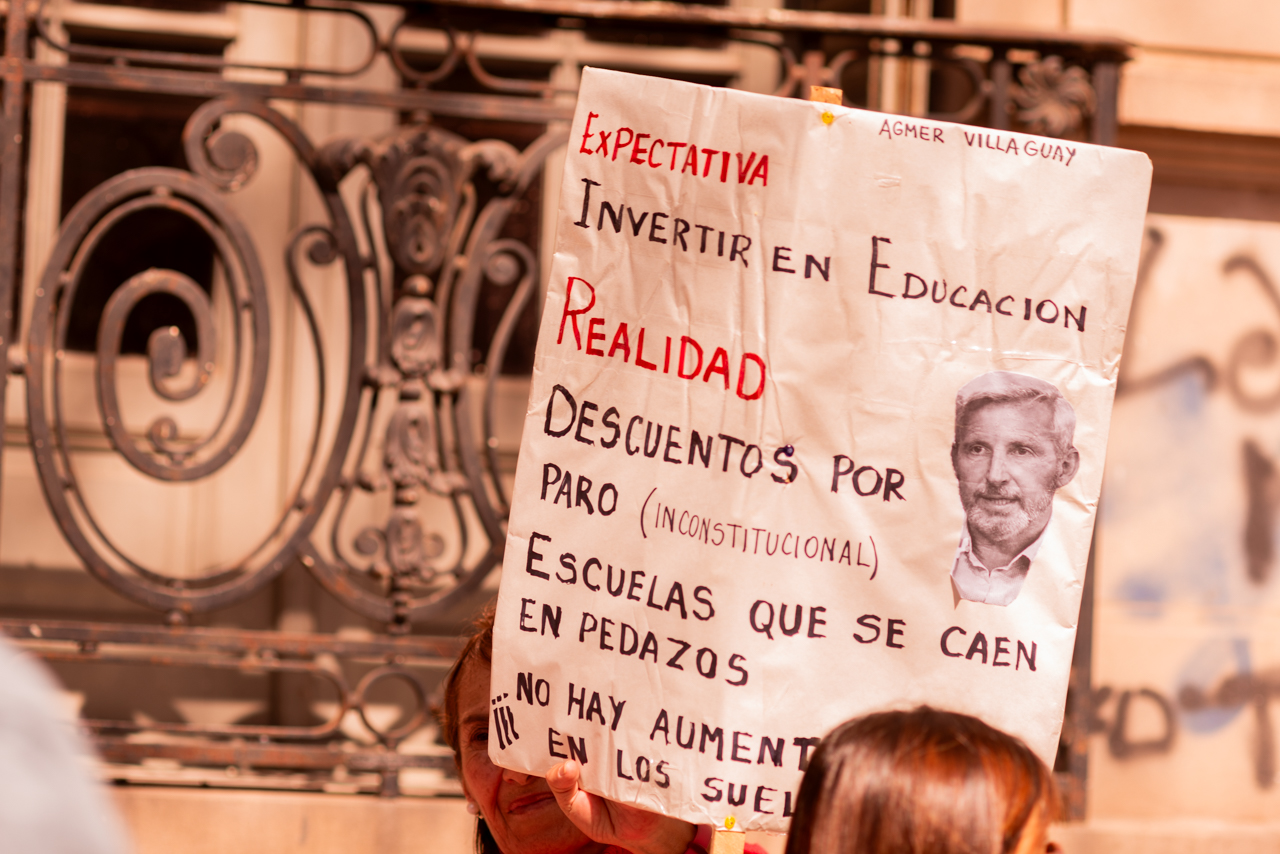 AGMER VILLAGUAY
EXPECTATIVA
INVERTIR EN EDUCACION
REALIDAD
DESCUENTOS POR
PARO (INCONSTITUCIONAL)
ESCUELAS QUE SE CAEN
EN PEDAZOS
¡¡¡ NO HAY AUMENT
EN LOS SUEL